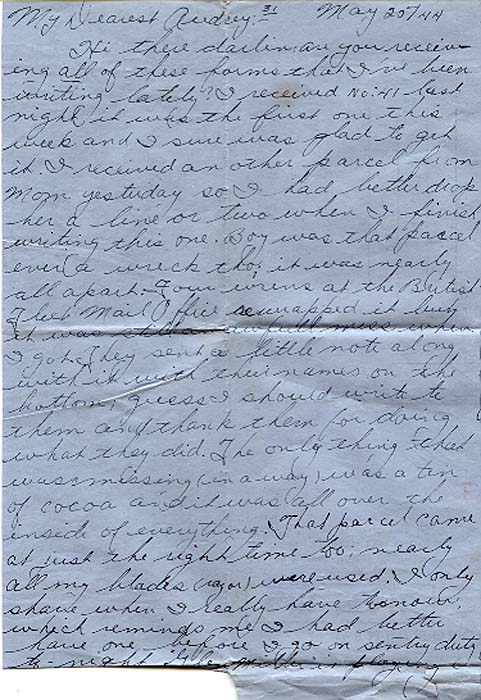 My Dearest Audrey: 31 May 20/44
Hi there darlin, are you receiv-
ing all of these forms that I've been
writing lately? I received No: 41 last
night, it was the first one this
week and I sure was glad to get
it. I received another parcel from
Mom yesterday so I had better drop
her a line or two when I finish
writing this one. Boy was that parcel
ever a wreck tho; it was nearly
all apart. Four wrens at the British
Fleet Mail Office rewrapped it but
it was still an awfull mess when
I got it. They sent a little note along
with it with their names on the
bottom, guess I should write to
them and thank them for doing
what they did. The only thing that
was missing (in a way) was a tin
of cocoa and it was all over the
inside of everything. That parcel came
at just the right time too; nearly
all my blades (razor) were used. I only
shave when I really have to now,
which reminds me I had better
have one before I go on sentry duty
to-night. playing